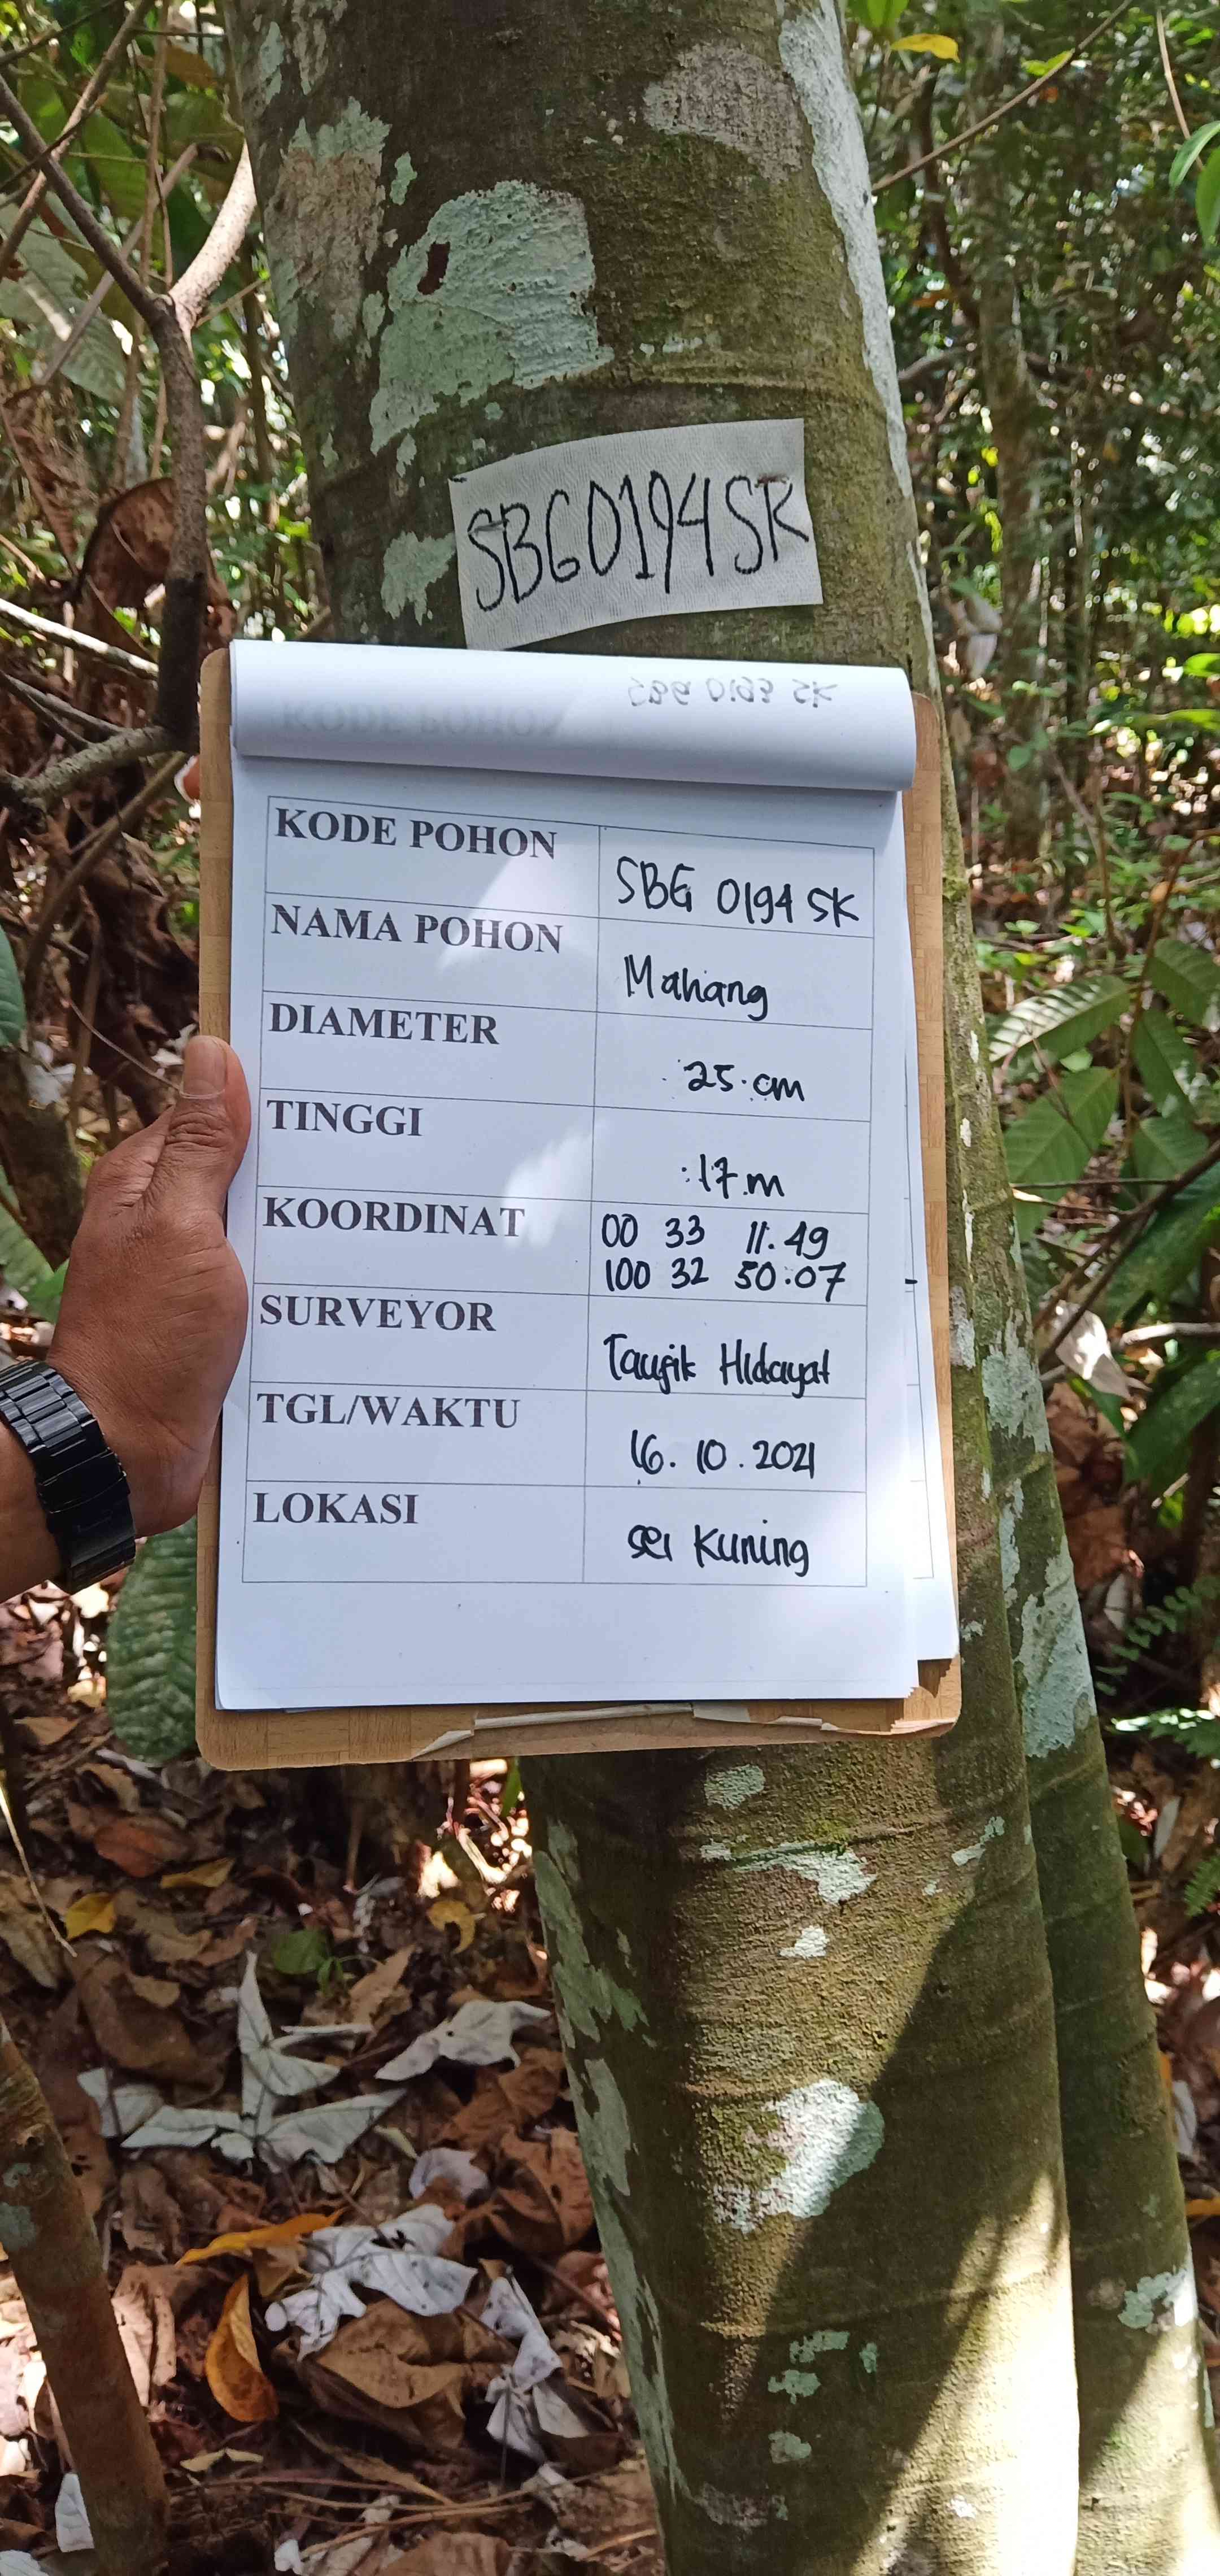 SBG0194SK
SBG 0193 SK
KODE POHON
KODE POHON
SBG 0194 SK
NAMA POHON
Mahang
DIAMETER
: 25. cm
TINGGI
: 17.m
KOORDINAT
00 33 11.49
100 32 50.07
SURVEYOR
Taufik Hidayat
TGL/WAKTU
16. 10. 2021
LOKASI
sei Kuning